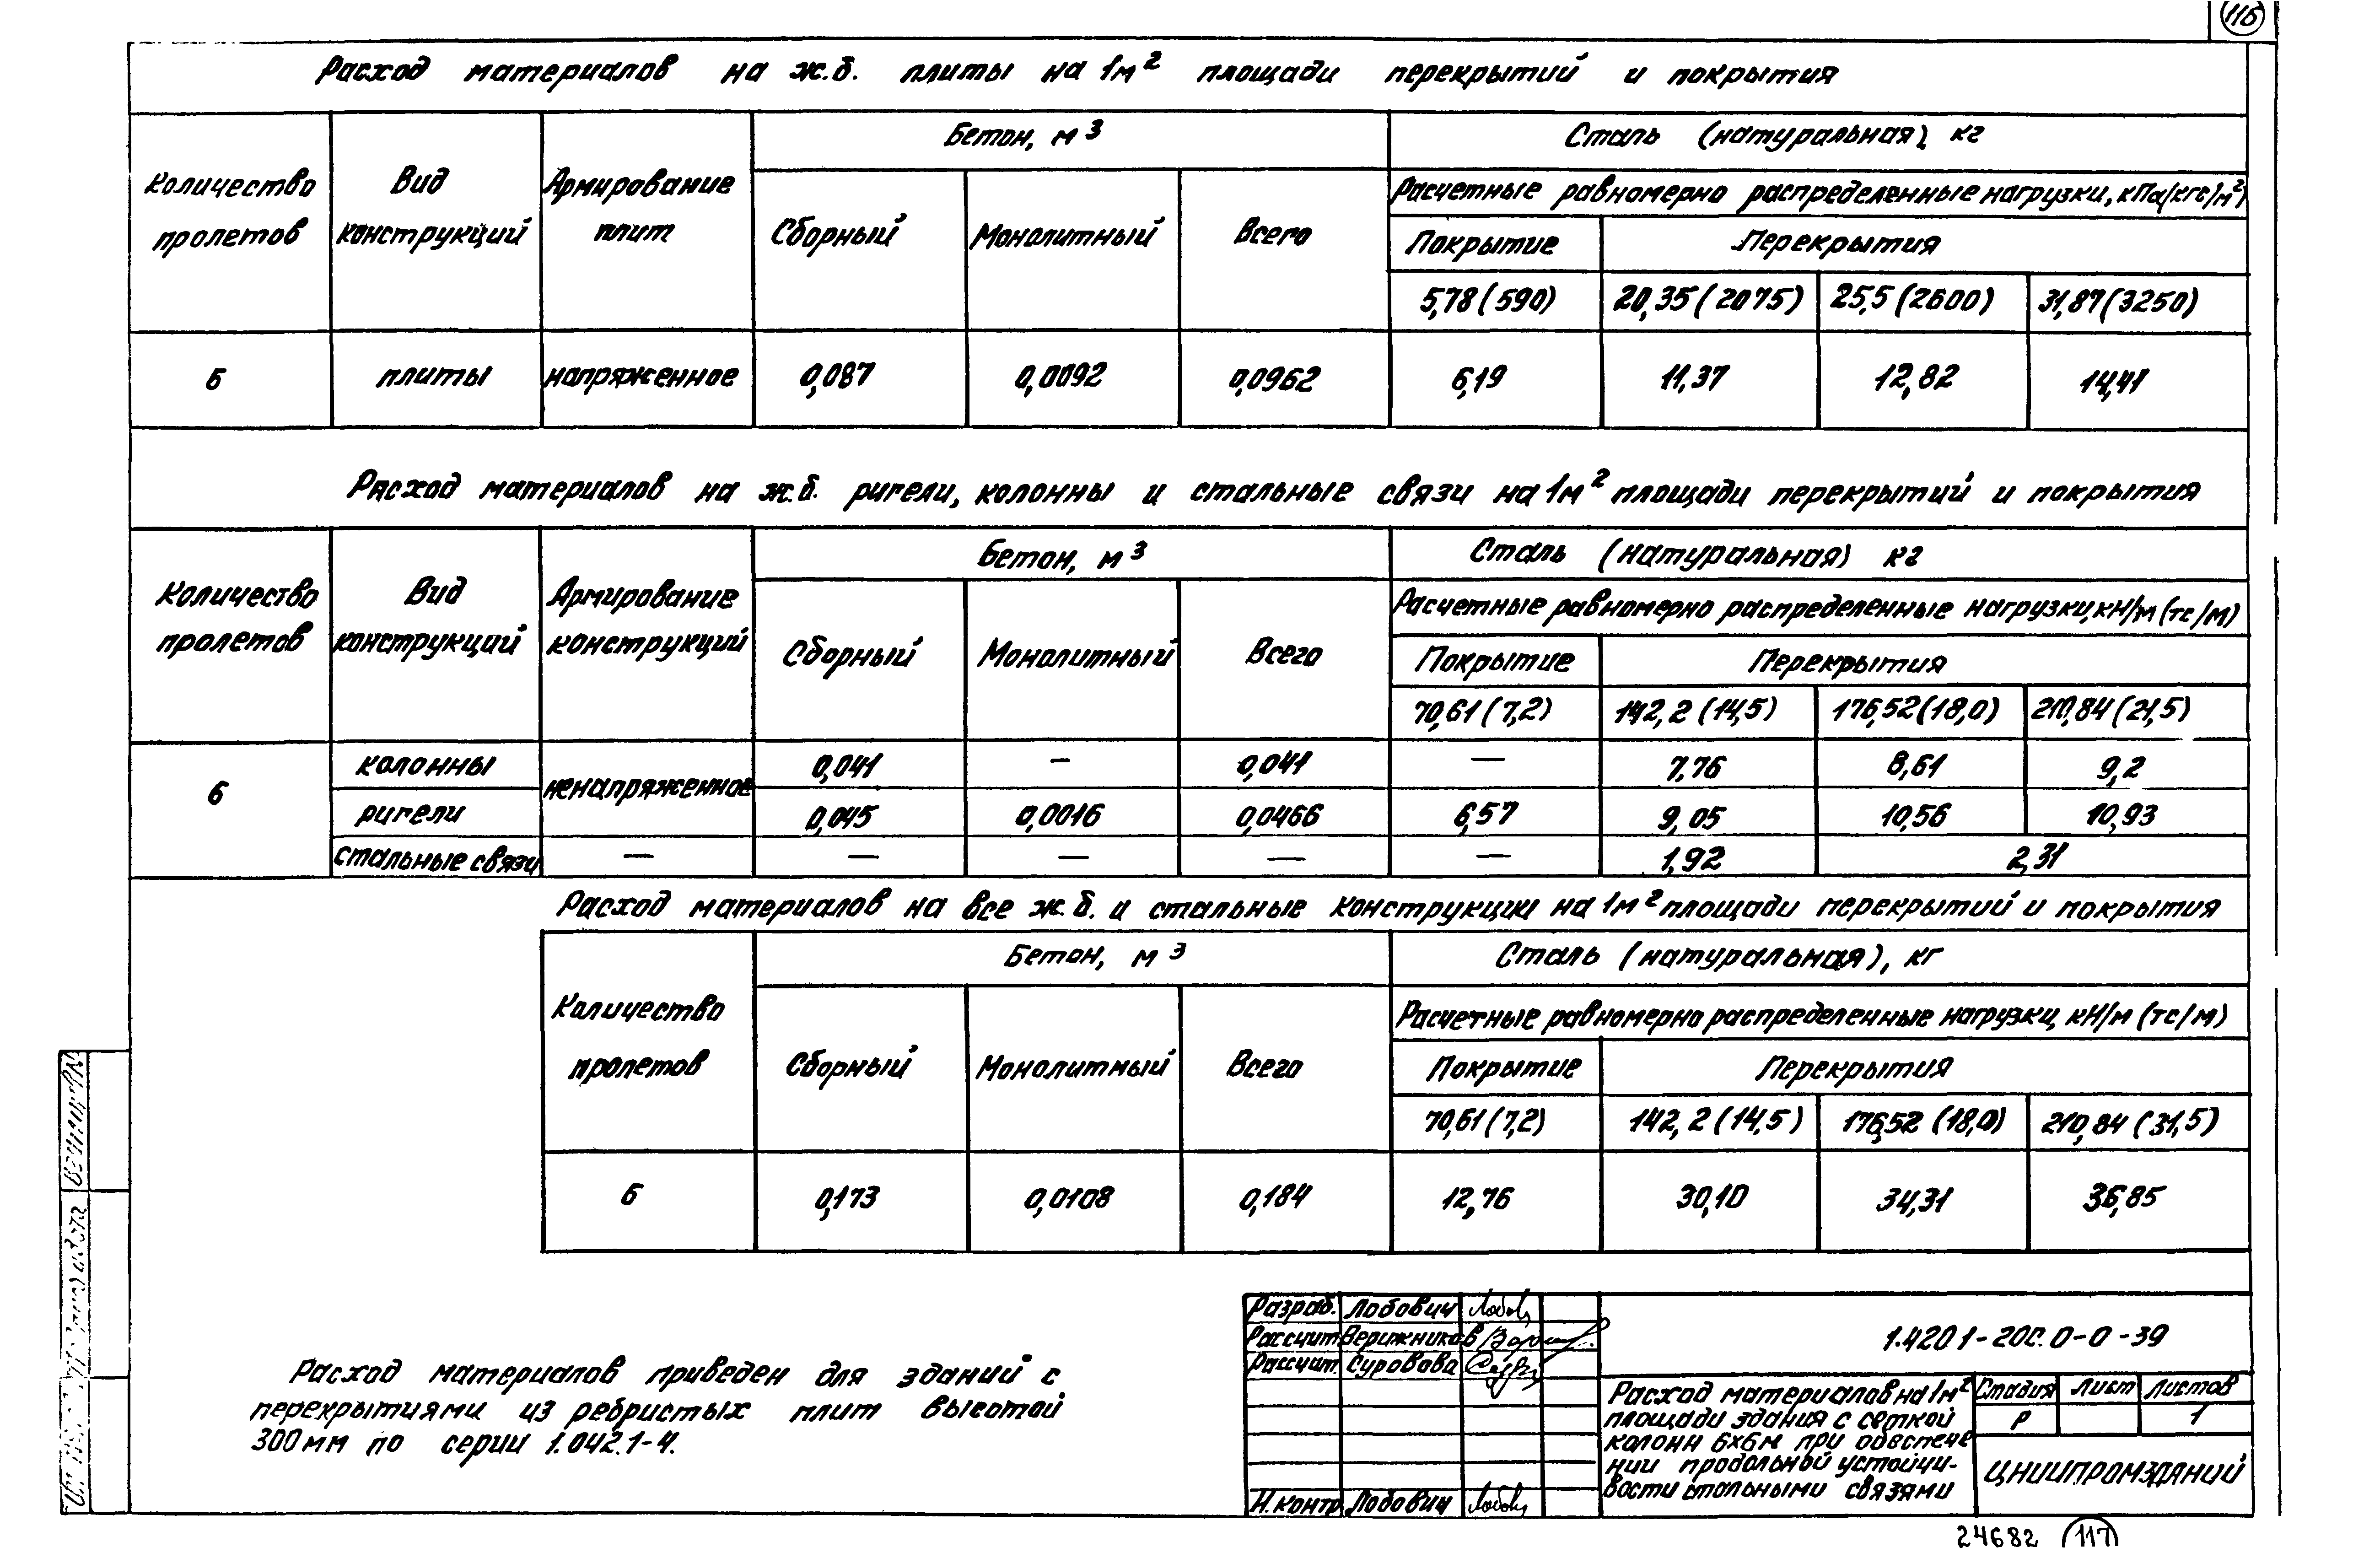 116
Расход материалов на ж.б. плиты на 1м² площади перекрытий и покрытия
Количество пролетов
Вид конструкций
Армирование плит
Бетон, м³
Сталь (натуральная), кг
Сборный
Монолитный
Всего
Расчетные равномерно распределенные нагрузки, кПа(кгс/м²)
Покрытие
Перекрытия
5,78 (590)
20,35 (2075)
25,5 (2600)
31,87 (3250)
6
плиты
напряженное
0,087
0,0092
0,0962
6,19
11,37
12,82
14,41
Расход материалов на ж.б. ригели, колонны и стальные связи на 1м² площади перекрытий и покрытия
Количество пролетов
Вид конструкций
Армирование конструкций
Бетон, м³
Сталь (натуральная) кг
Сборный
Монолитный
Всего
Расчетные равномерно распределенные нагрузки, кН/м (тс/м)
Покрытие
Перекрытия
70,61 (7,2)
142,2 (14,5)
176,52 (18,0)
210,84 (21,5)
6
колонны
ненапряженное
0,041
—
0,041
—
7,76
8,61
9,2
ригели
0,045
0,0016
0,0466
6,57
9,05
10,56
10,93
стальные связи
—
—
—
—
—
1,92
2,31
Расход материалов на все ж.б. и стальные конструкции на 1м² площади перекрытий и покрытия
Количество пролетов
Бетон, м³
Сталь (натуральная), кг
Сборный
Монолитный
Всего
Расчетные равномерно распределенные нагрузки, кН/м (тс/м)
Покрытие
Перекрытия
70,61 (7,2)
142,2 (14,5)
176,52 (18,0)
210,84 (31,5)
6
0,173
0,0108
0,184
12,76
30,10
34,31
36,85
Расход материалов приведен для зданий с
перекрытиями из ребристых плит высотой
300мм по серии 1.042.1-4.
Разраб. Лобович
Рассчит Верижников
Рассчит. Суровова
Н.контр Лобович
1.420 1-20С.0-0-39
Расход материалов на 1м²
площади здания с сеткой
колонн 6х6м при обеспече
нии продольной устойчи-
вости стальными связями
Стадия Лист Листов
Р 1
ЦНИИПРОМЗДАНИЙ
24682 117